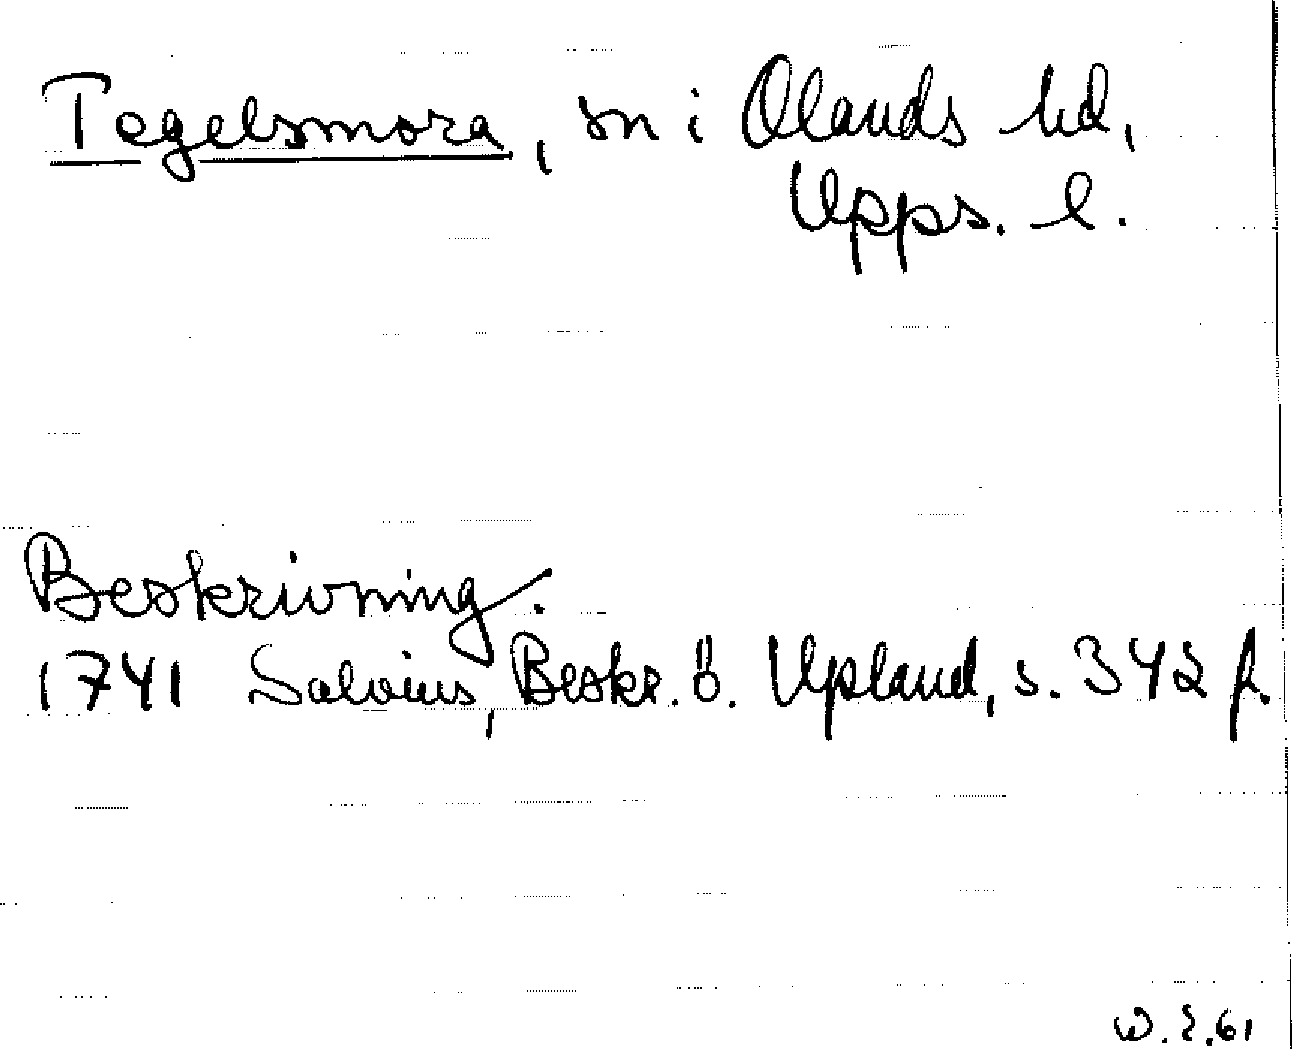 Tegelsmora, sn i Olands hd,
Upps. l.
Beskrivning.
1741 Salvius, Beskr. ö. Upland, s. 342 f.
W. E. 61